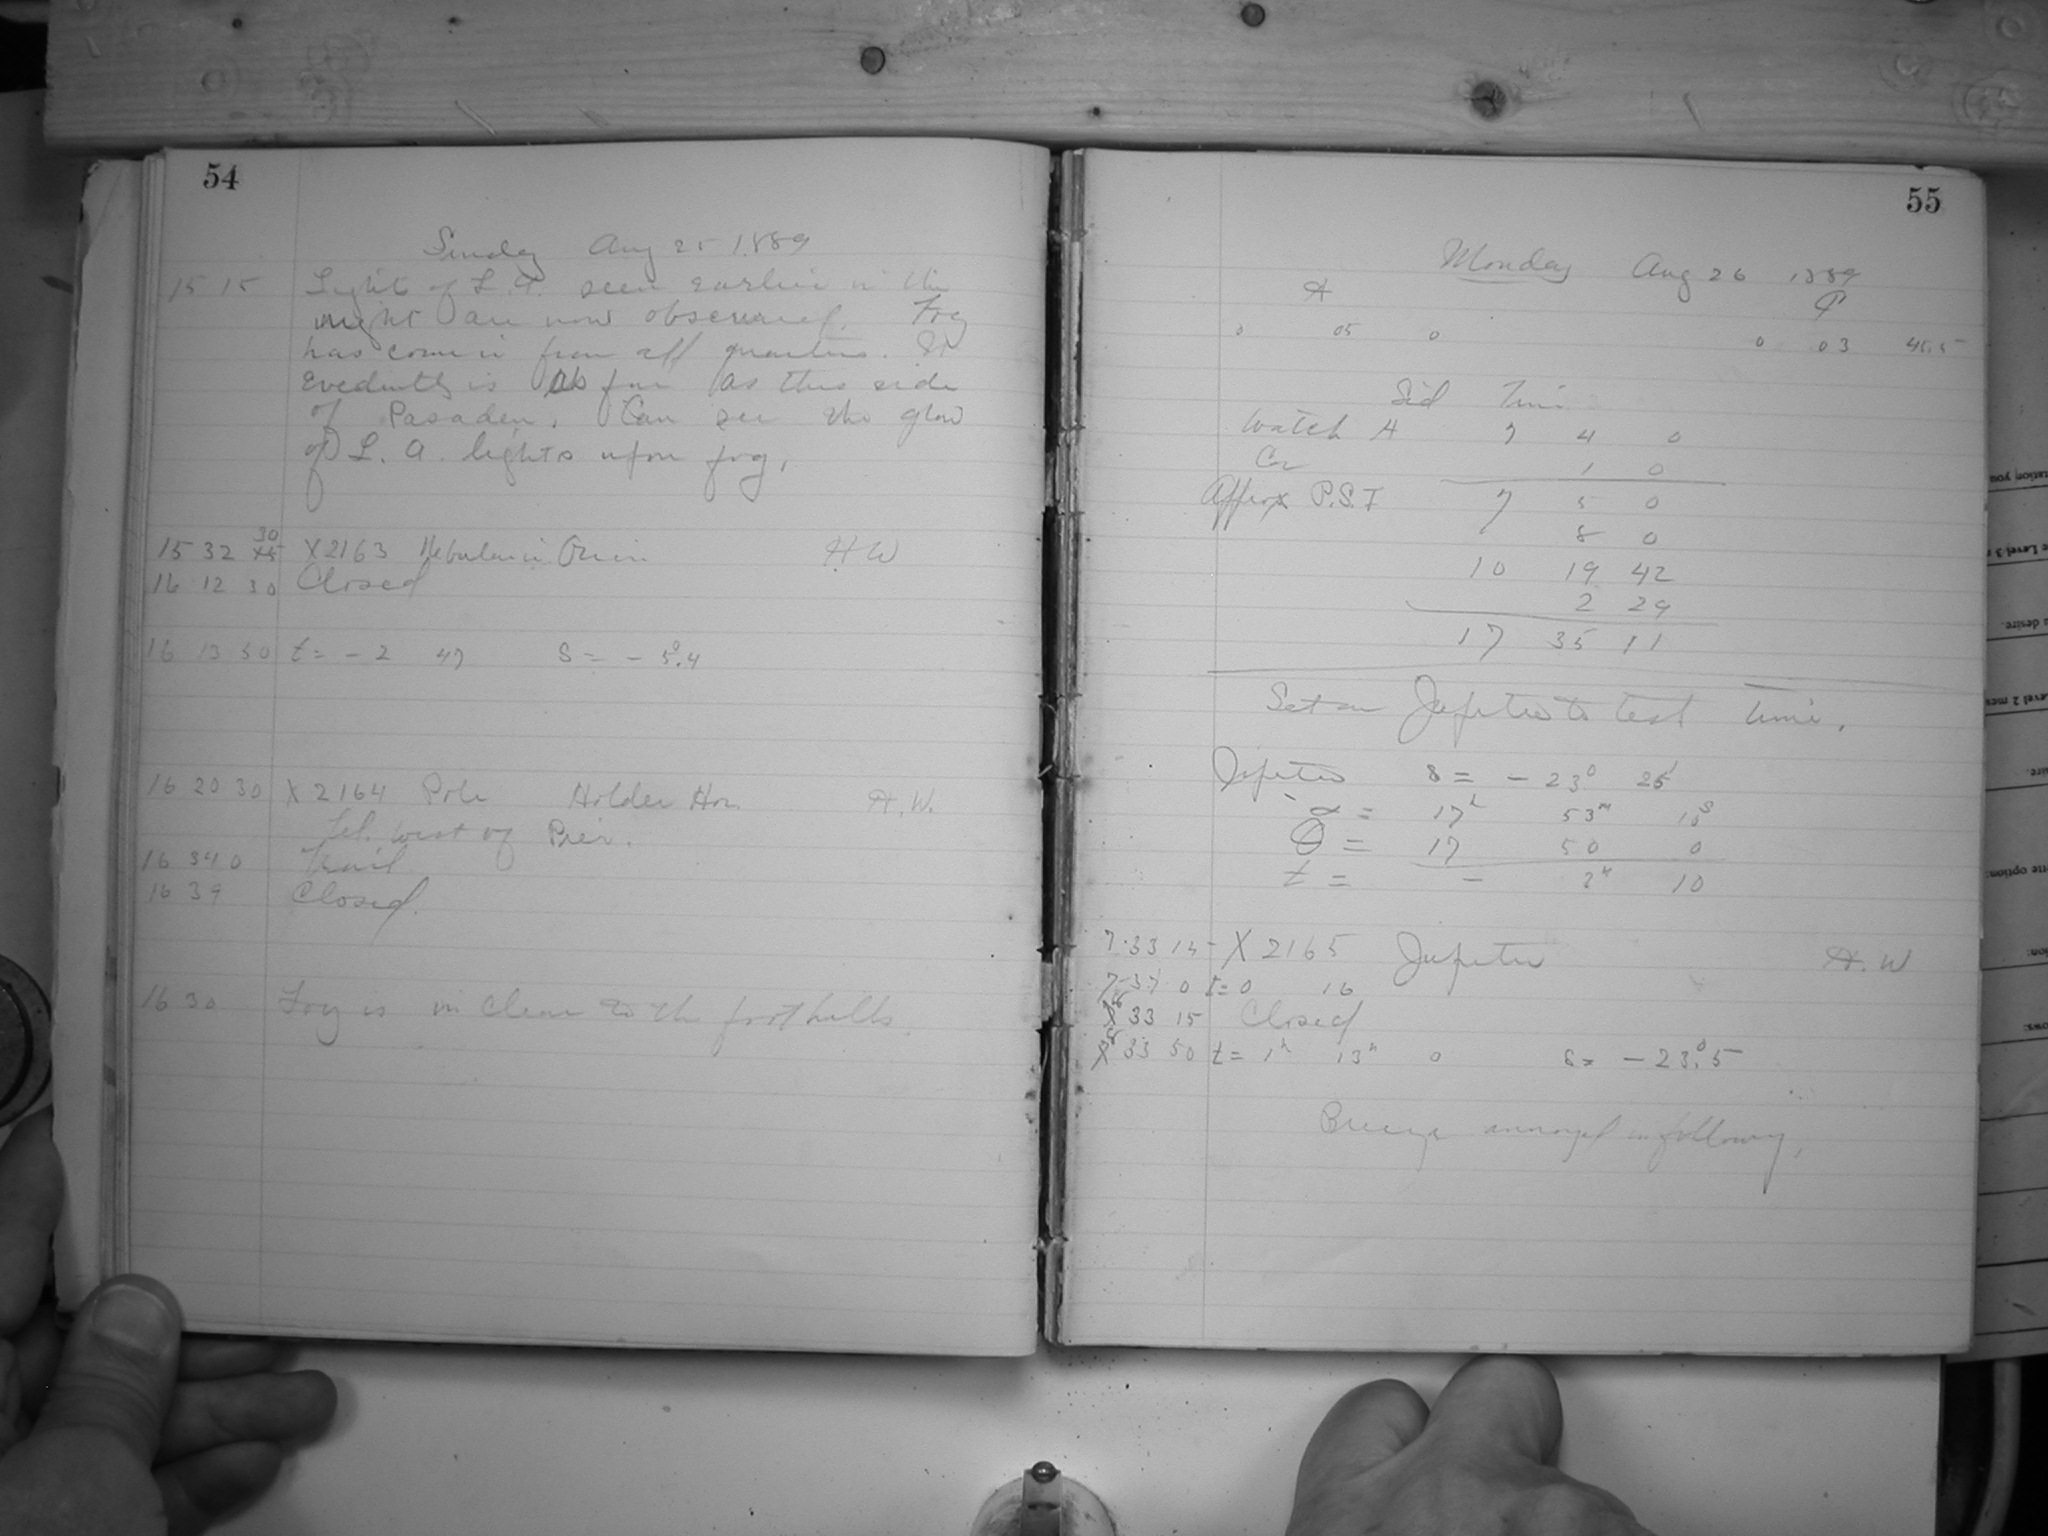 54
Sunday Aug 25 1889
15 15 Light of L.A. seen earlier in the
night are now obscured. Fog
has come in from all quarters. It
evedently is as far as this side
of Pasaden. Can see the glow
of L. A. lights upon fog.
15 32 30 X2163 Nebula in Orion H W
16 12 30 Closed
16 13 50 t = - 2 47 δ = - 5°.4
16 20 30 X 2164 Pole Holder Hor. H. W.
Tel. west of Pier.
16 34 0 Trail
16 39 Closed.
16 30 Fog is in clear to the foot hills.
55
Monday Aug 26 1889
A P
0 05 0 0 03 45.5
Sid Time
Watch A 7 4 0
Cor 1 0
Approx P.S.T 7 5 0
8 0
10 19 42
2 29
17 35 11
Set on Jupiter to test time.
Jupiter δ = - 23° 25'
α = 17h 53m 10s
θ = 17 50 0
t = - 2m 10
7 33 15 X 2165 Jupiter H. W
7 37 0 t = 0 16
33 15 Closed
33 50 t = 1h 13m 0 δ = - 23°.5
Breeze annoyed in following.